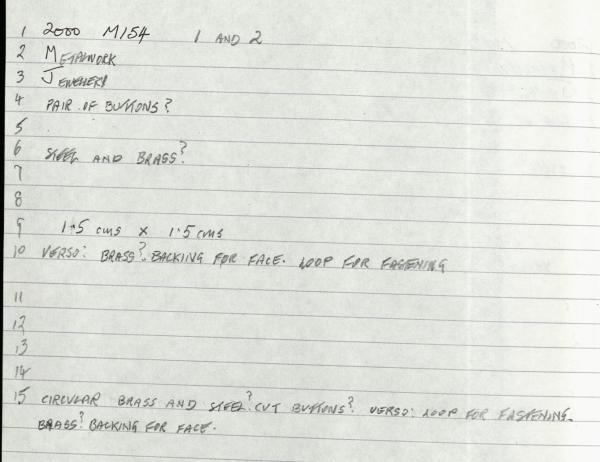 1 2000 M154 1 AND 2
2 METALWORK
3 JEWELLERY
4 PAIR OF BUTTONS?
5
6 STEEL AND BRASS?
7
8
9 1.5 cms x 1.5 cms
10 VERSO: BRASS? BACKING FOR FACE. LOOP FOR FASTENING
11
12
13
14
15 CIRCULAR BRASS AND STEEL? CUT BUTTONS? VERSO: LOOP FOR FASTENING.
BRASS? BACKING FOR FACE.